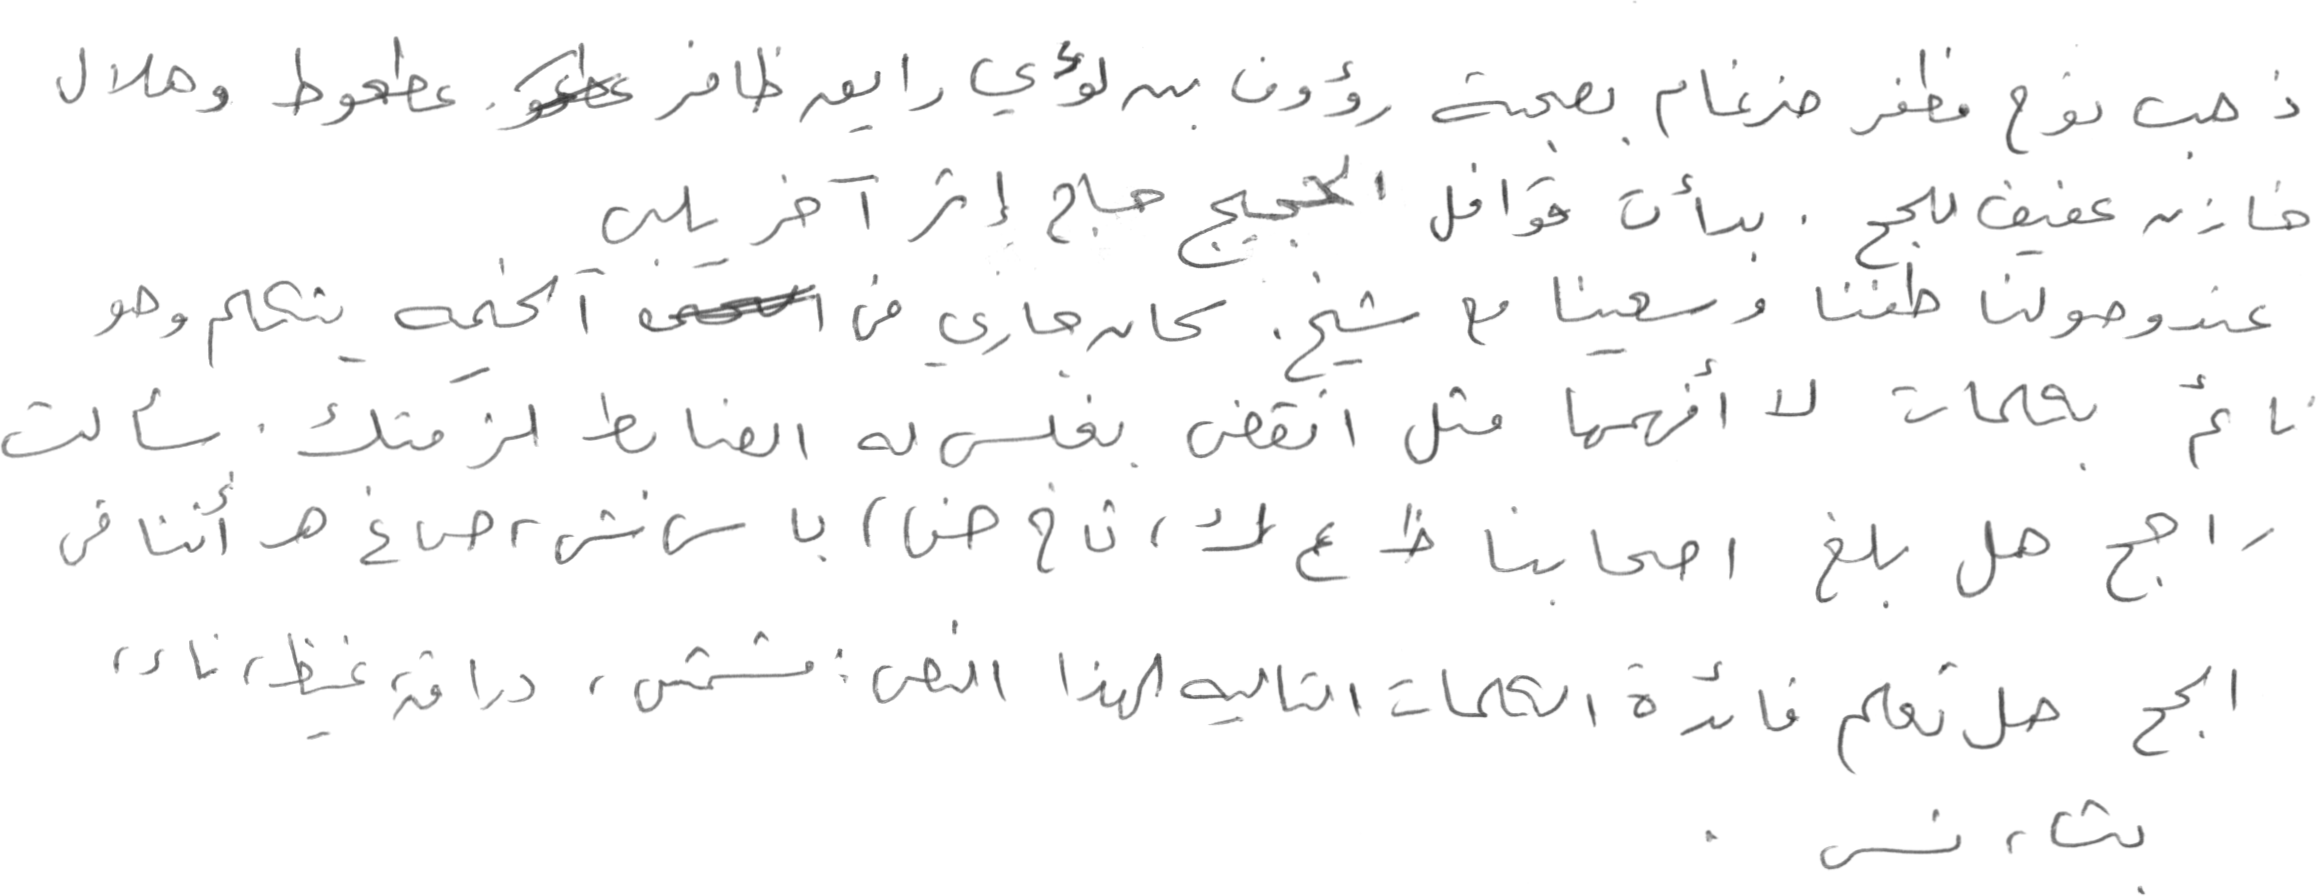 ذهب نوح مظفر ضرغام بصحبة رؤوف بن لؤي رايق ظافر عطعوط وهلال
خازن عفيف للحج . بدأت قوافل الحجيج حاج إثر آخر يلبي
عند وصولنا طفنا وسعينا مع شيخ . كان جاري في الخيمة يتكلم وهو
نائم بكلمات لا أفهمها مثل انقض بغلس له الضابط لزمتك . سألت
راجح هل بلغ اصحابنا ظ ع ك ، ث خ ض ، با س ش ، ص غ هـ أثنا في
الحج هل تعلم فائدة الكلمات التالية لهذا النص : مشمش ، دراق ، غيظ ، ناء ،
بث ، نس .